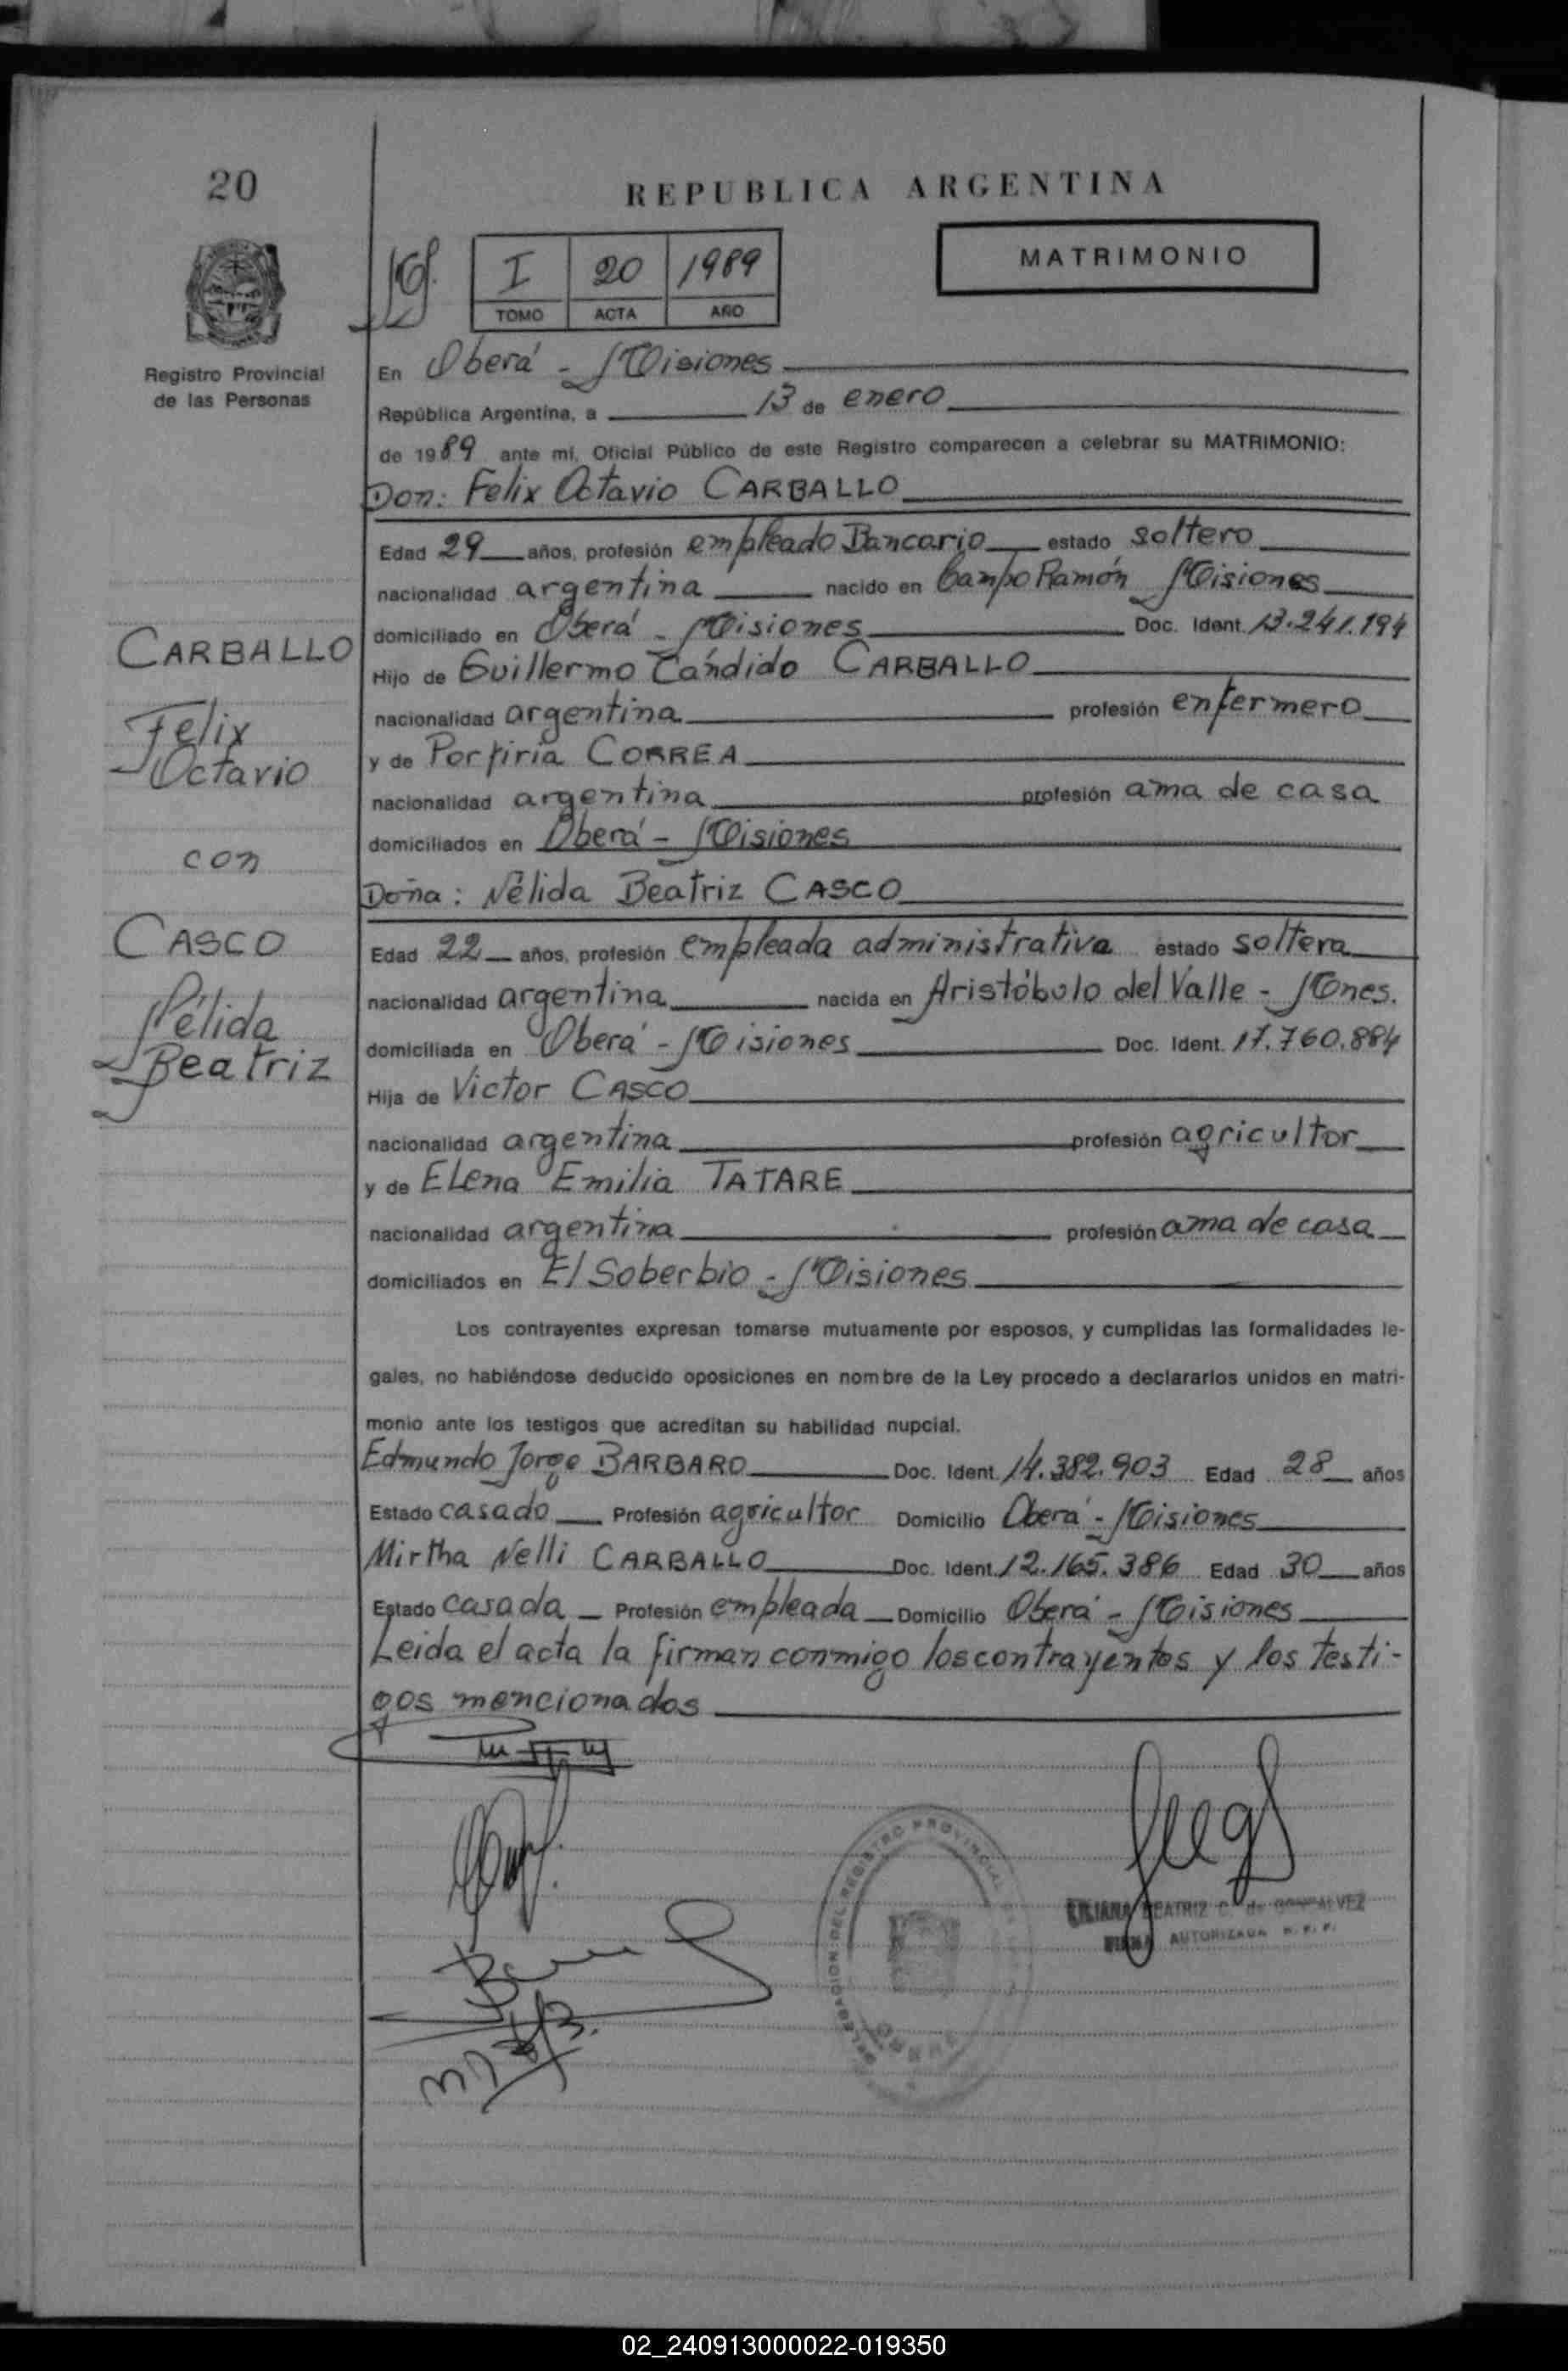 20
REPUBLICA ARGENTINA
MATRIMONIO
I 20 1989
TOMO ACTA AÑO
Registro Provincial
de las Personas
En Oberá - Misiones
República Argentina, a 13 de enero
de 1989 ante mí, Oficial Público de este Registro comparecen a celebrar su MATRIMONIO:
Don: Felix Octavio CARBALLO
Edad 29 años, profesión empleado Bancario estado soltero
nacionalidad argentina nacido en Campo Ramón Misiones
domiciliado en Oberá - Misiones Doc. Ident. 13.241.194
Hijo de Guillermo Cándido CARBALLO
nacionalidad argentina profesión enfermero
y de Porfiria CORREA
nacionalidad argentina profesión ama de casa
domiciliados en Oberá - Misiones
Doña: Nélida Beatriz CASCO
Edad 22 años, profesión empleada administrativa estado soltera
nacionalidad argentina nacida en Aristóbulo del Valle - Mnes.
domiciliada en Oberá - Misiones Doc. Ident. 17.760.884
Hija de Victor CASCO
nacionalidad argentina profesión agricultor
y de ELena Emilia TATARE
nacionalidad argentina profesión ama de casa
domiciliados en El Soberbio - Misiones
Los contrayentes expresan tomarse mutuamente por esposos, y cumplidas las formalidades le-
gales, no habiéndose deducido oposiciones en nombre de la Ley procedo a declararlos unidos en matri-
monio ante los testigos que acreditan su habilidad nupcial.
Edmundo Jorge BARBARO Doc. Ident. 14.382.903 Edad 28 años
Estado casado Profesión agricultor Domicilio Oberá - Misiones
Mirtha Nelli CARBALLO Doc. Ident. 12.165.386 Edad 30 años
Estado casada Profesión empleada Domicilio Oberá - Misiones
Leida el acta la firman conmigo los contrayentes y los testi-
gos mencionados
CARBALLO
Felix
Octavio
con
CASCO
Nélida
Beatriz
DELEGACION DEL REGISTRO PROVINCIAL
LILIANA BEATRIZ C. de GONSALVEZ
FIRMA AUTORIZADA R.P.P.
02_240913000022-019350